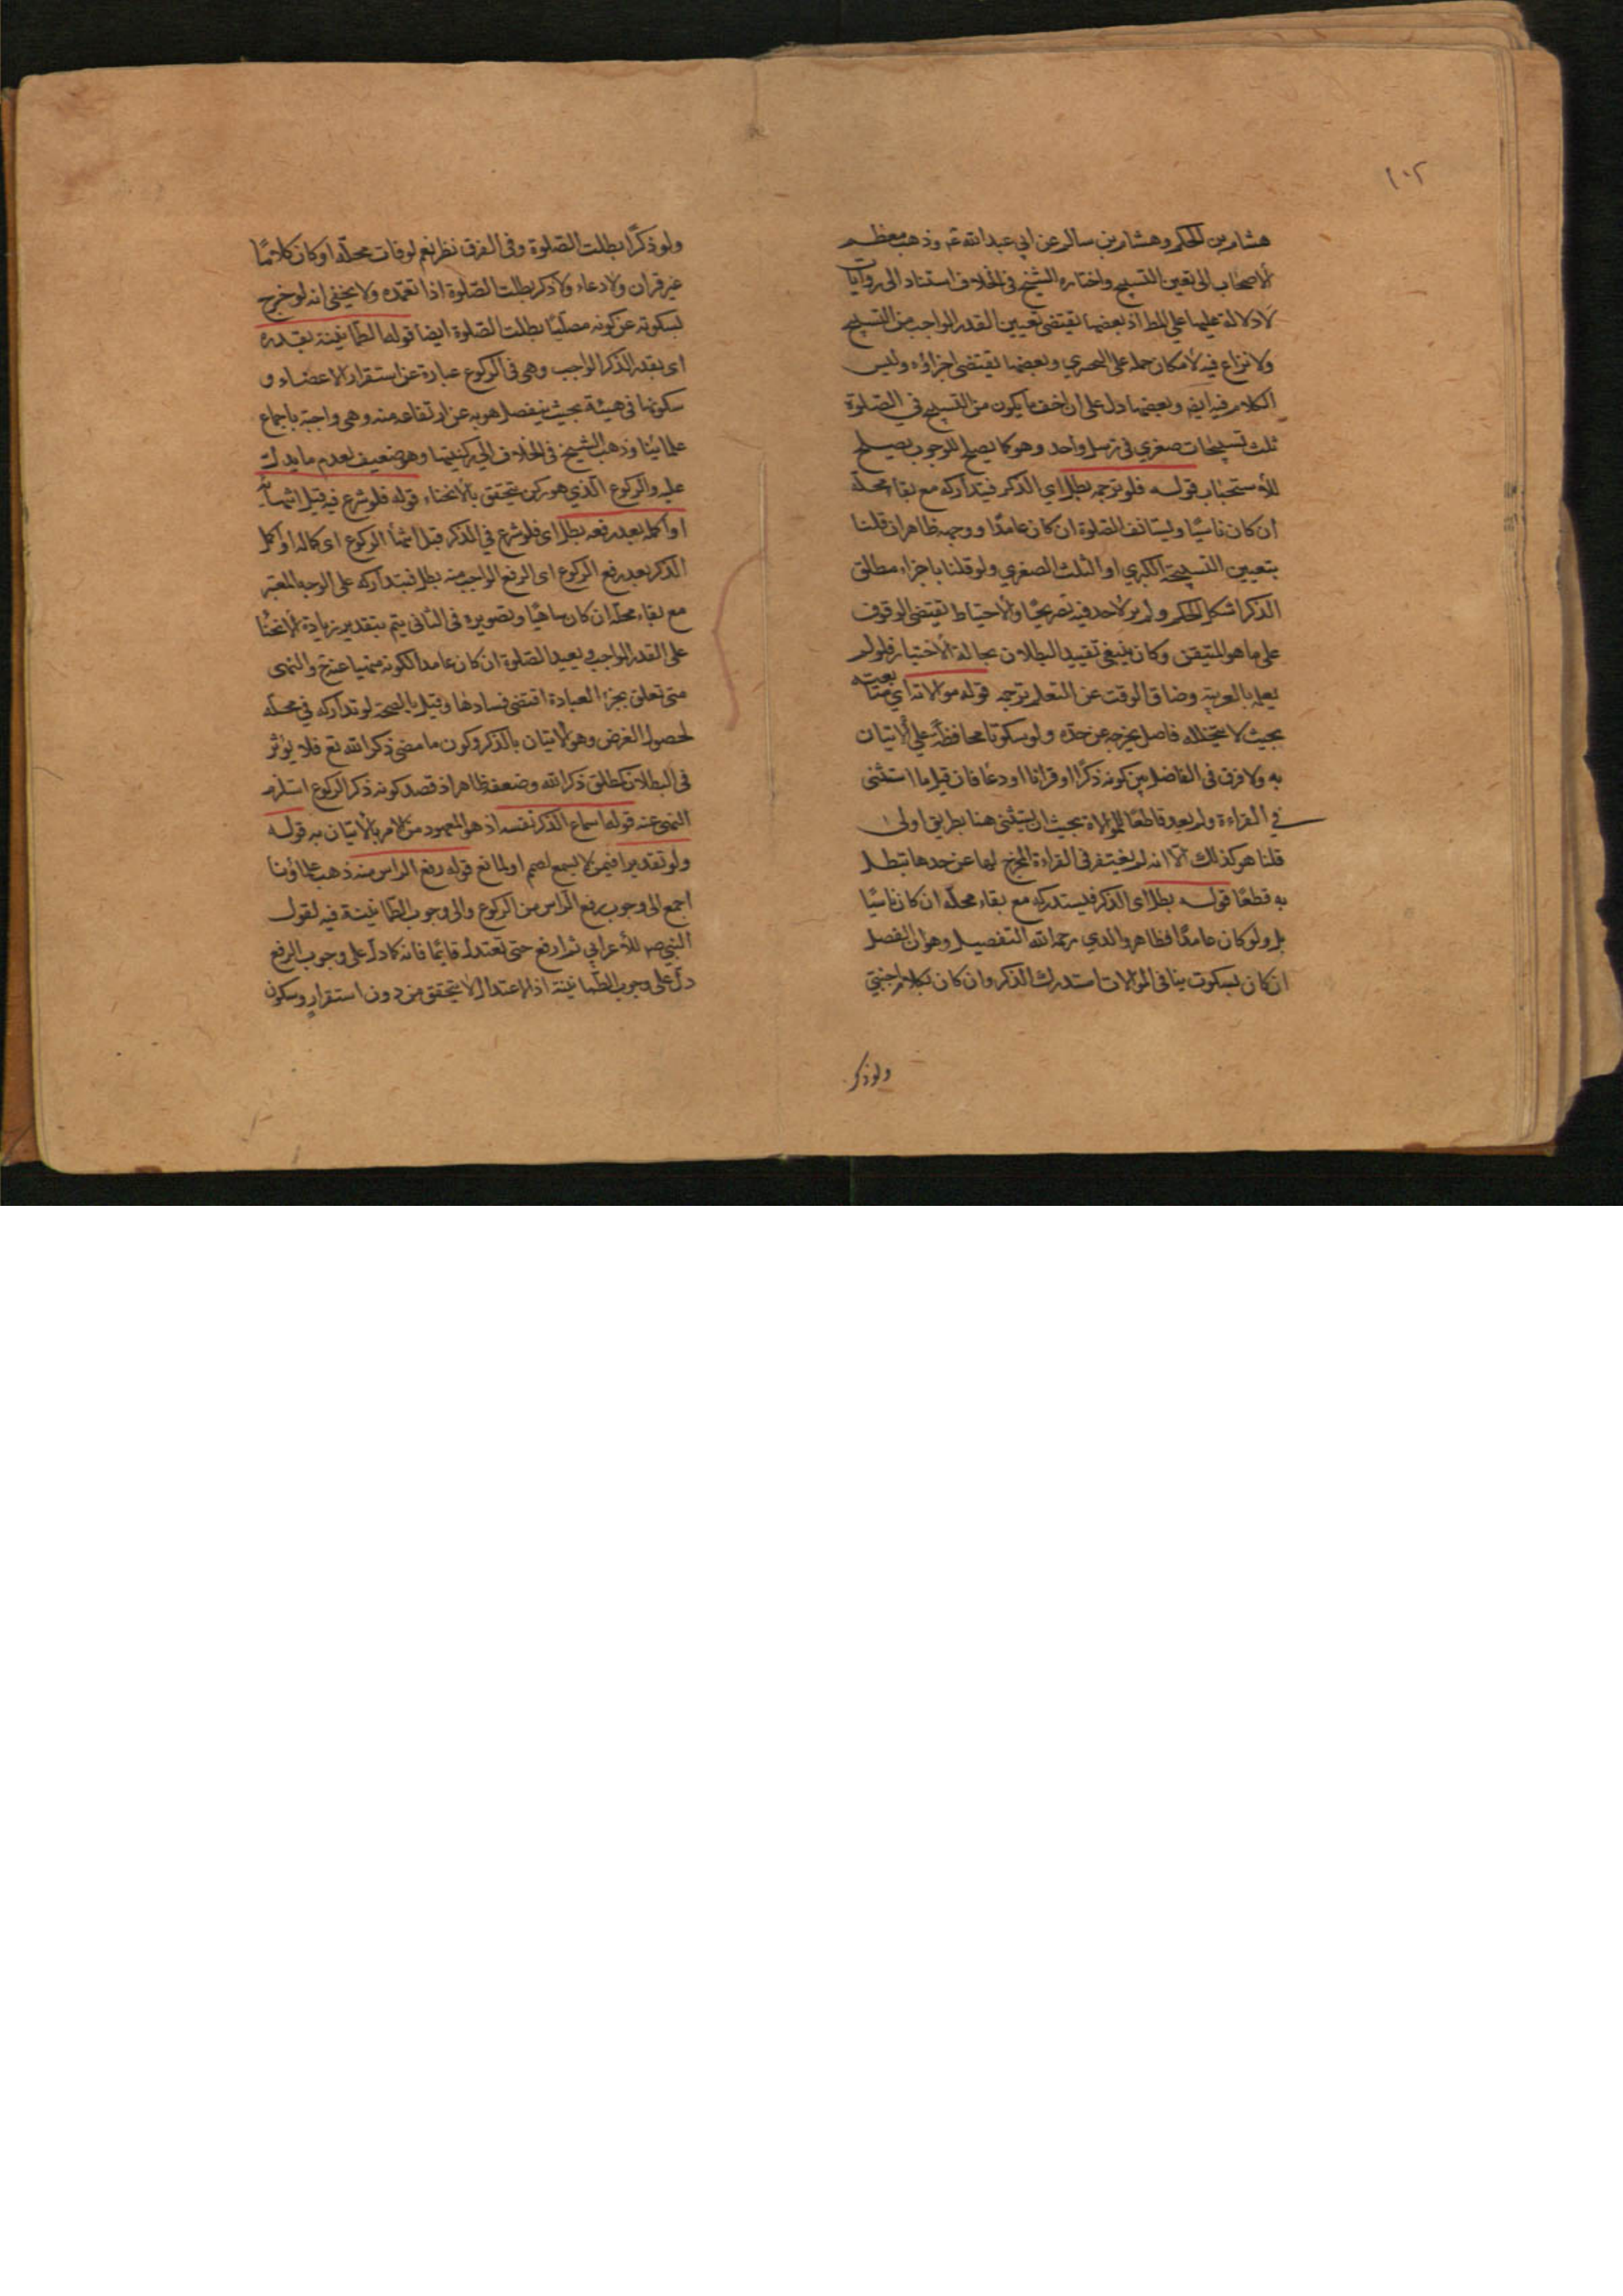 ١٠٢
هشام بن الحكم وهشام بن سالم عن ابي عبد الله عم وذهب معظم
الاصحاب الى تعين التسبيح واختاره الشيخ في الخلاف استناد الى روايات
لا دلالة عليها على المط اذ بعضها يقتضى تعيين القدر الواجب من التسبيح
ولا نزاع فيه لامكان حمله على التحري وبعضها يقتضى اجزاؤه وليس
الكلام فيه ايضا وبعضها دل على ان اخف ما يكون من التسبيح في الصلوة
ثلث تسبيحات صغري في ترسل واحد وهو كما يصلح للوجوب يصلح
للاستحباب قوله فلو ترجمه بطل اي الذكر فيتداركه مع بقاء محله
ان كان ناسيًا ويستانف الصلوة ان كان عامدًا ووجهه ظاهر ان قلنا
بتعيين التسبيحة الكبري او الثلث الصغري ولو قلنا باجزاء مطلق
الذكر اشكل الحكم ولم ير لاحد فيه تصريحًا والاحتياط يقتضى الوقوف
على ما هو المتيقن وكان ينبغي تقييد البطلان بحالة الاختيار فلو لم
يعلم بالعربية وضاق الوقت عن التعلم ترجمه قوله موالاته اي متابعته
بحيث لا يتخلله فاصل يخرجه عن حده ولو سكوتا محافظة على الاتيان
به ولا فرق في الفاضل بين كونه ذكرًا او قرانا او دعا فان قيل ما استثنى
في القراءة ولم يعد قاطعًا للموالاة بحيث ان يستثنى هنا بطريق اولى
قلنا هو كذلك الا انه لم يغتفر في القراءة المخرج لها عن حدها تبطل
به قطعًا قوله بطل اى الذكر فيستدركه مع بقاء محله ان كان ناسيًا
بل ولو كان عامدًا فظاهر والدي رحمه الله التفصيل وهو ان الفصل
ان كان بسكوت ينافى الموالات استدرك الذكر وان كان بكلام اجنبي
ولو ذكر
ولو ذكرًا بطلت الصلوة وفي الفرق نظر نعم لو فات محله او كان كلامًا
غير قران ولا دعاء ولا ذكر بطلت الصلوة اذا تعمده ولا يخفى انه لو خرج
بسكوته عن كونه مصليًا بطلت الصلوة ايضا قوله الطمانينة بقدره
اى بقدر الذكر الواجب وهى في الركوع عبارة عن استقرار الاعضاء و
سكونها في هيئة بحيث ينفصل هويه عن ارتفاعه منه وهى واجبة باجماع
علمائنا وذهب الشيخ في الخلاف الى ركنيتها وهو ضعيف لعدم ما يدل
عليه والركوع الذي هو ركن يتحقق بالانحناء قوله فلو شرع فيه قبل انتهائه
او اكمله بعد رفعه بطل اى فلو شرع في الذكر قبل انتهاء الركوع اى كماله او اكمل
الذكر بعد رفع الركوع اى الرفع الواجب منه بطل فيتداركه على الوجه المعتبر
مع بقاء محله ان كان ساهيًا وتصويره في الثانى يتم بتقدير زيادة الانحناء
على القدر الواجب ويعيد الصلوة ان كان عامدا لكونه منهيا عنه ح والنهى
متى تعلق بجزء العبادة اقتضى فسادها وقيل بالصحة لو تداركه في محله
لحصول الغرض وهو الاتيان بالذكر وكون ما مضى ذكر الله تع فلا يؤثر
في البطلان كمطلق ذكر الله وضعفه ظاهر اذ قصد كونه ذكر الركوع استلزم
النهى عنه قوله اسماع الذكر نفسه اذ هو المعهود من الامر بالاتيان به قوله
ولو تقديرا فيمن لا يسمع لصمم او لمانع قوله رفع الراس منه ذهب علماؤنا
اجمع الى وجوب رفع الراس من الركوع والى وجوب الطمانينة فيه لقول
النبي ص للاعرابي ثم ارفع حتى تعتدل قايمًا فانه كما دل على وجوب الرفع
دل على وجوب الطمانينة اذ الاعتدال لا يتحقق من دون استقرار وسكون